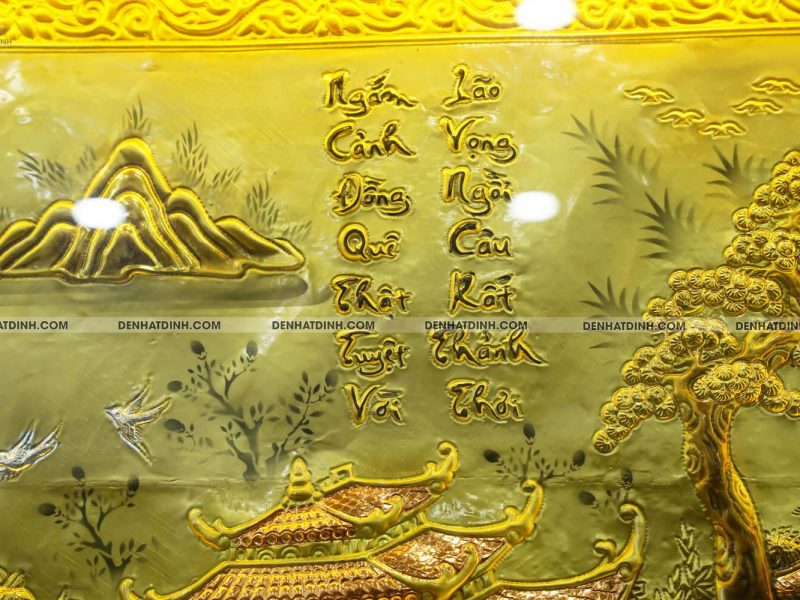 Lão Vọng Ngồi Câu Rất Thảnh Thơi
Ngắm Cảnh Đồng Quê Thật Tuyệt Vời
HATDINH.COM DENHATDINH.COM DENHATDINH.COM DENHATDINH.COM DENHATD